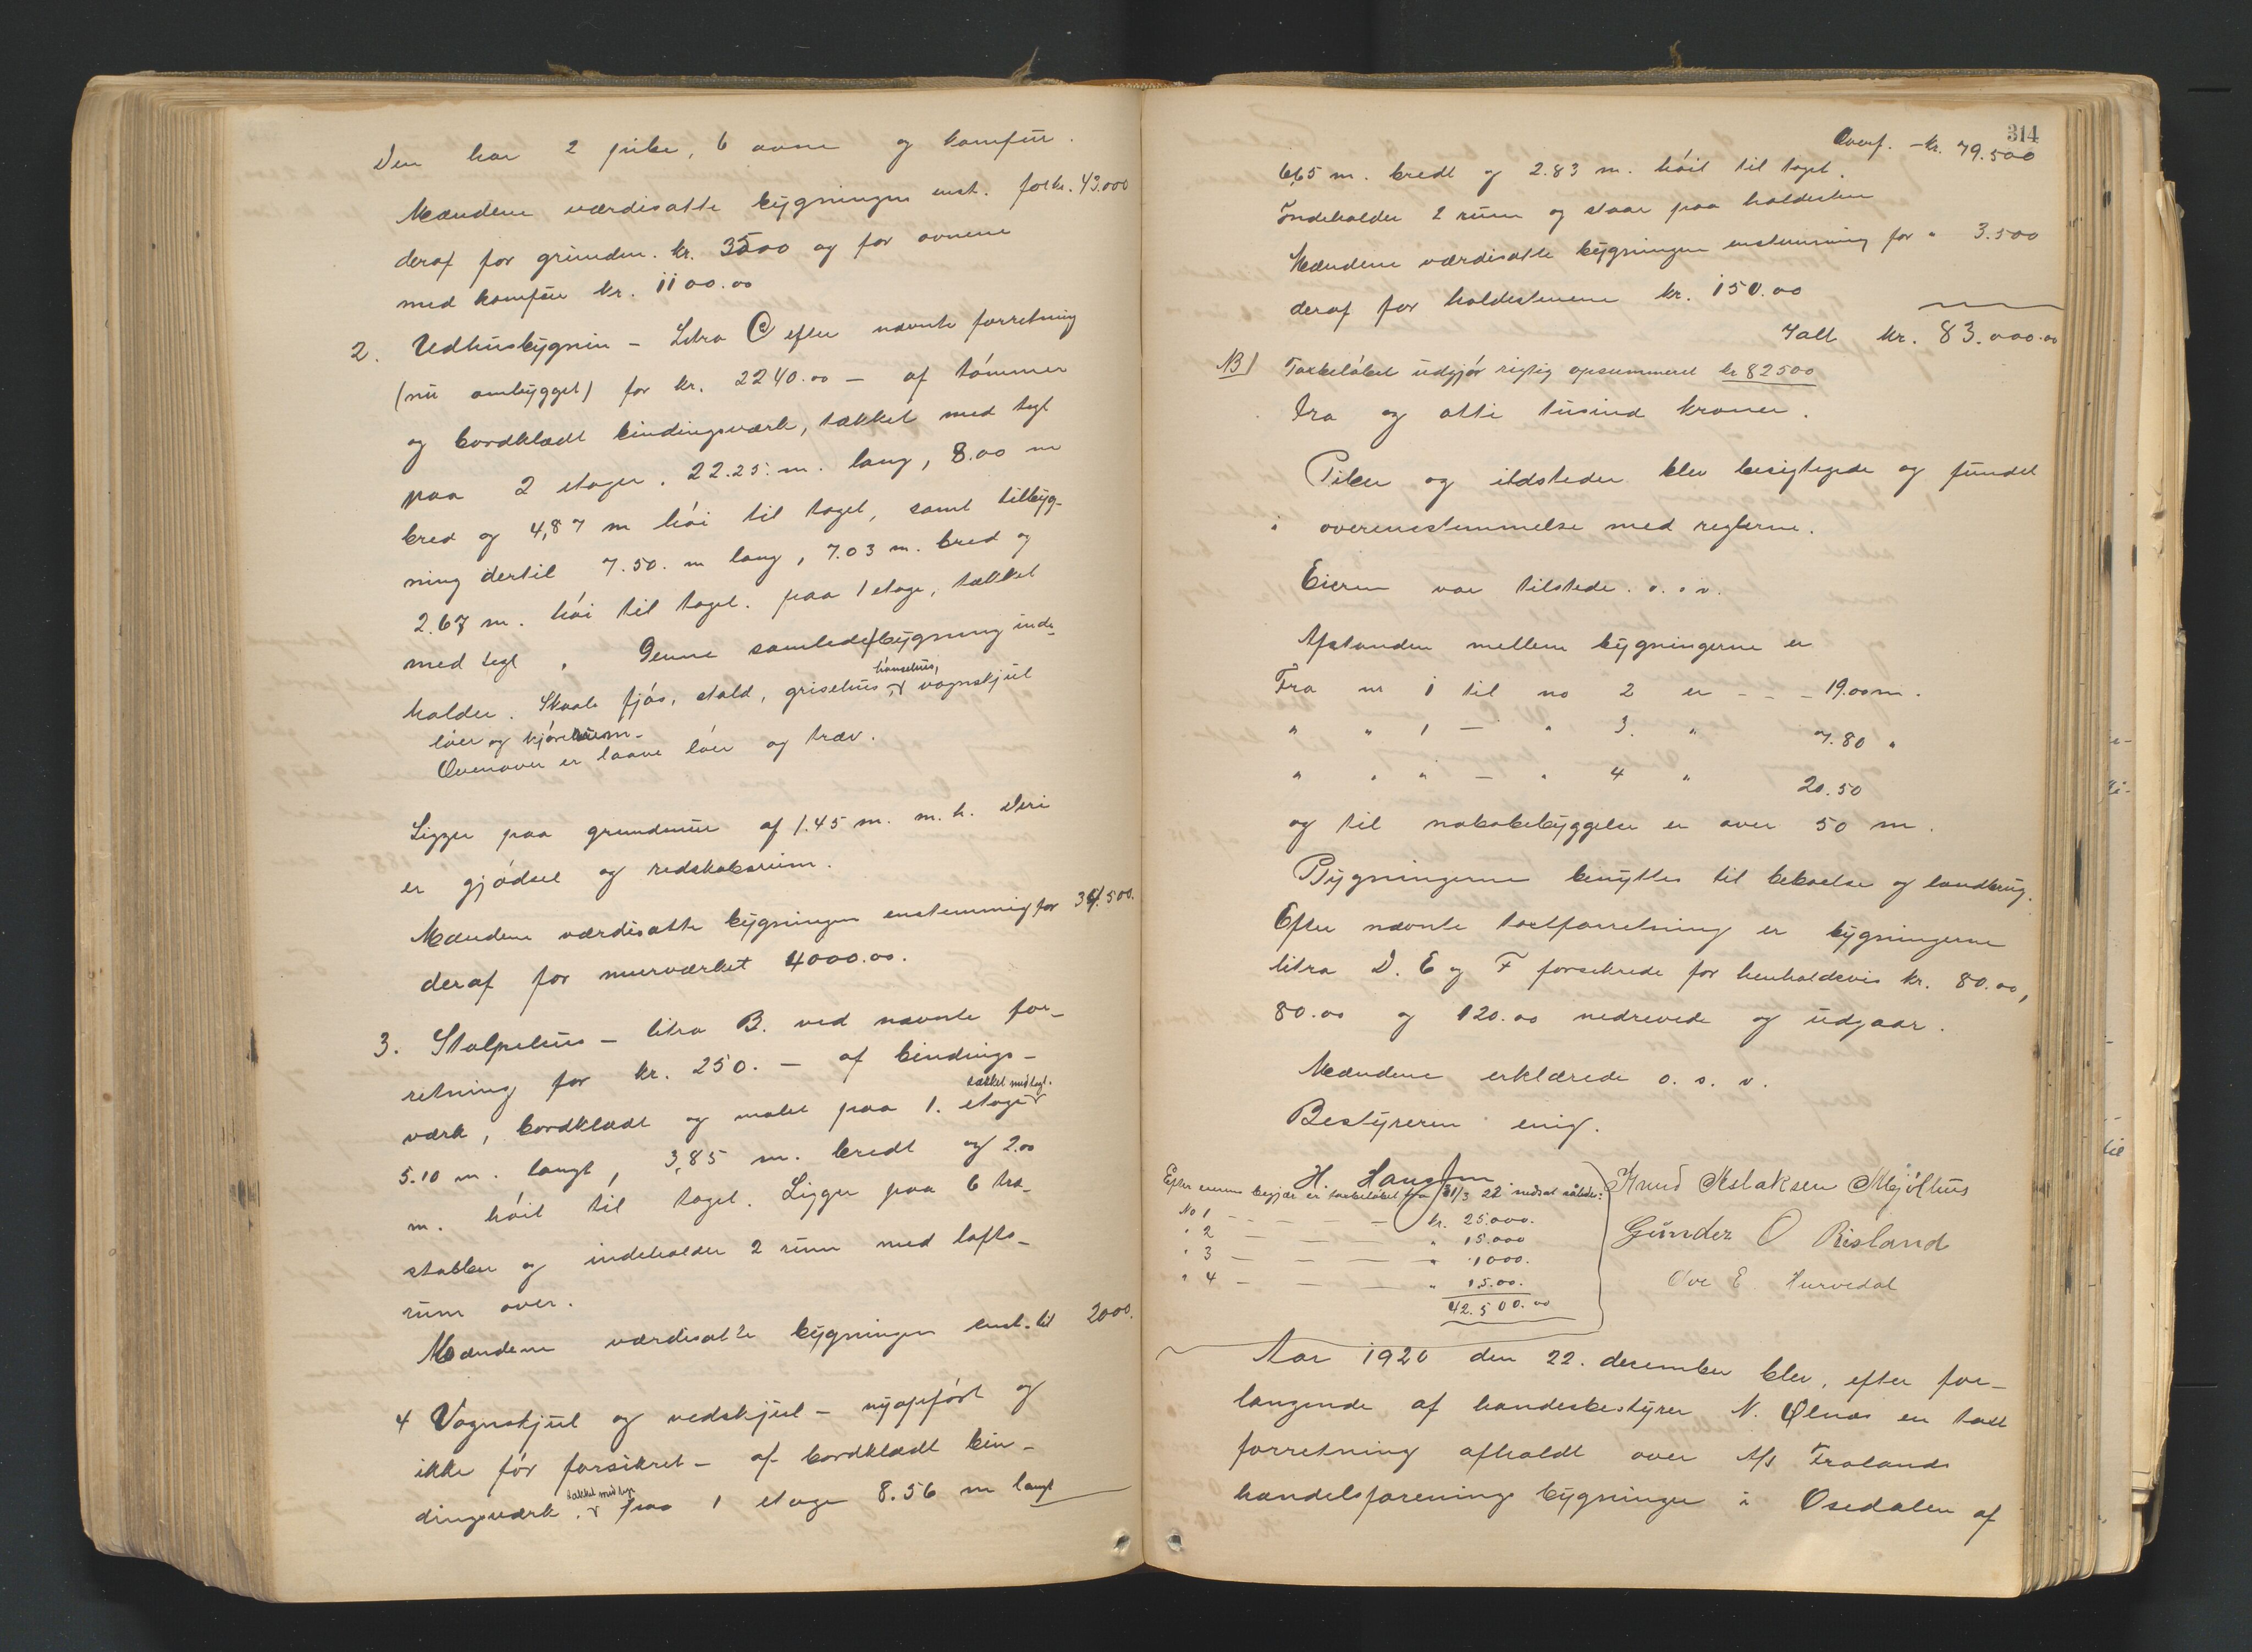 Den har 2 piber, 6 ovne og komfur.
Mændene værdisatte bygningen enst. for kr. 43.000
deraf for grunden. kr. 3500 og for ovnene
med komfur kr. 1100.00
2. Uedhusbygnin - Litra C efter nævnte forretning
(nu ombygget) for kr. 2240.00 - af tømmer
og bordklædt bindingsværk, tækket med tegl
paa 2 etager. 22.25. m. lang, 8.00 m
bred og 4,87 m høi til taget, samt tilbyg-
ning dertil 7.50. m lang, 7.03 m. bred og
2.67 m. høi til taget. paa 1 etage, tækket
med tegl. Denne samlede bygning inde-
hønsehus,
holder. Skaale fjøs, stald, grisehus, vognskjul
løer og kjørerum-
Ovenover er laave løer og træv.
Ligger paa grundmur af 1.45 m. m. h. Deri
er gjødsel og redskabsrum.
Mændene værdisatte bygningen enstemmig for 34.500.
deraf for murværket 4000.00.
3. Stolpehus - litra B. ved nævnte for-
retning for kr. 250. - af bindings-
tækket med tegl.
værk, bordklædt og malet paa 1. etage
5.10 m. langt, 3,85 m. bredt og 2.00
m. høit til taget. Ligger paa 6 træ-
stabber og indeholder 2 rum med lofts-
rum over.
Mændene værdisatte bygningen enst. til 2000.
4 Vognskjul og vedskjul - nyopført og
ikke før forsikret - af bordklædt bin-
tækket med tegl
dingsværk. paa 1 etage 8.56 m langt
314
Overf. - kr. 79.500
6,65 m. bredt og 2.83 m. høit til taget.
Indeholder 2 rum og staar paa holdesten
Mændene værdisatte bygningen enstemmig for " 3.500
deraf for holdestenene kr. 150.00
Ialt kr. 83.000.00
NB) Taxtbeløbet udgjør rigtig opsummeret kr 82500
tra og otti tusind kroner.
Piber og ildsteder blev besigtigede og fundet
i overensstemmelse med reglerne.
Eieren var tilstede. o. s. v.
Afstanden mellem bygningerne er
Fra nr 1 til no 2 er - - - 19.00 m.
" " 1 - " 3. " 7.80 "
" " " - " 4 " 20.50
og til nabobebyggelse er over 50 m.
Bygningerne benyttes til beboelse og landbrug.
Efter nævnte taxtforretning er bygningerne
litra D. E og F forsikrede for henholdsvis kr. 80.00,
80.00 og 120.00 nedrevede og udgaar.
Mændene erklærede o. s. v.
Bestyreren enig.
H. Haugen
Knud Aslaksen Mjølhus
Efter eierens begjær er taxtbeløbet fra 31/3 22 nedsat således:
No 1 - - - - - kr. 25.000.
" 2 - - - - " 15.000
Gunder O Risland
" 3 - - - - " 1000.
" 4 - - - - " 1500.
Ove E. Hurvedal
42.500.00
Aar 1920 den 22. desember blev, efter for-
langende af handesbestyrer N. Ølnæs en taxt
forretning afholdt over A/s Frolands
handelsforenings bygninger i Osedalen af